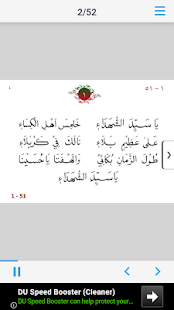 2/52
٥١ - ١
١
يَا سَيِّدَ الشُّهَدَاءِ خَامِسَ أَهْلِ الْكِسَاءِ
عَلَىٰ عَظِيمِ بَلَاءِ نَالَكَ فِي كَرْبَلَاءِ
طُولَ الزَّمَانِ بُكَائِي وَالَهْفَتَا يَاحُسَيْنَا
يَاسَيِّدَ الشُّهَدَاءِ
1 - 51
DU Speed Booster (Cleaner)
DU Speed Booster can help protect your...